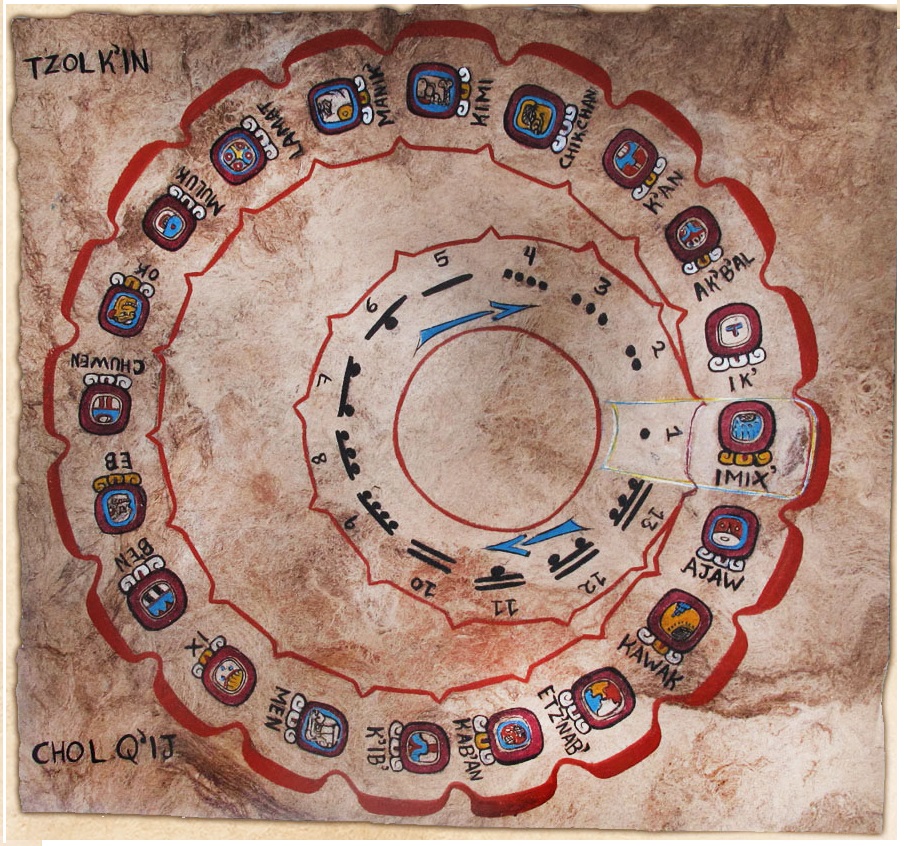 TZOLK'IN
IMIX'
IK'
AK'B'AL
K'AN
CHIKCHAN
KIMI
MANIK'
LAMAT
MULUK
OK
CHUWEN
EB
BEN
IX
MEN
K'IB'
KAB'AN
ETZ'NAB'
KAWAK
AJAW
1
2
3
4
5
6
7
8
9
10
11
12
13
CHOL Q'IJ